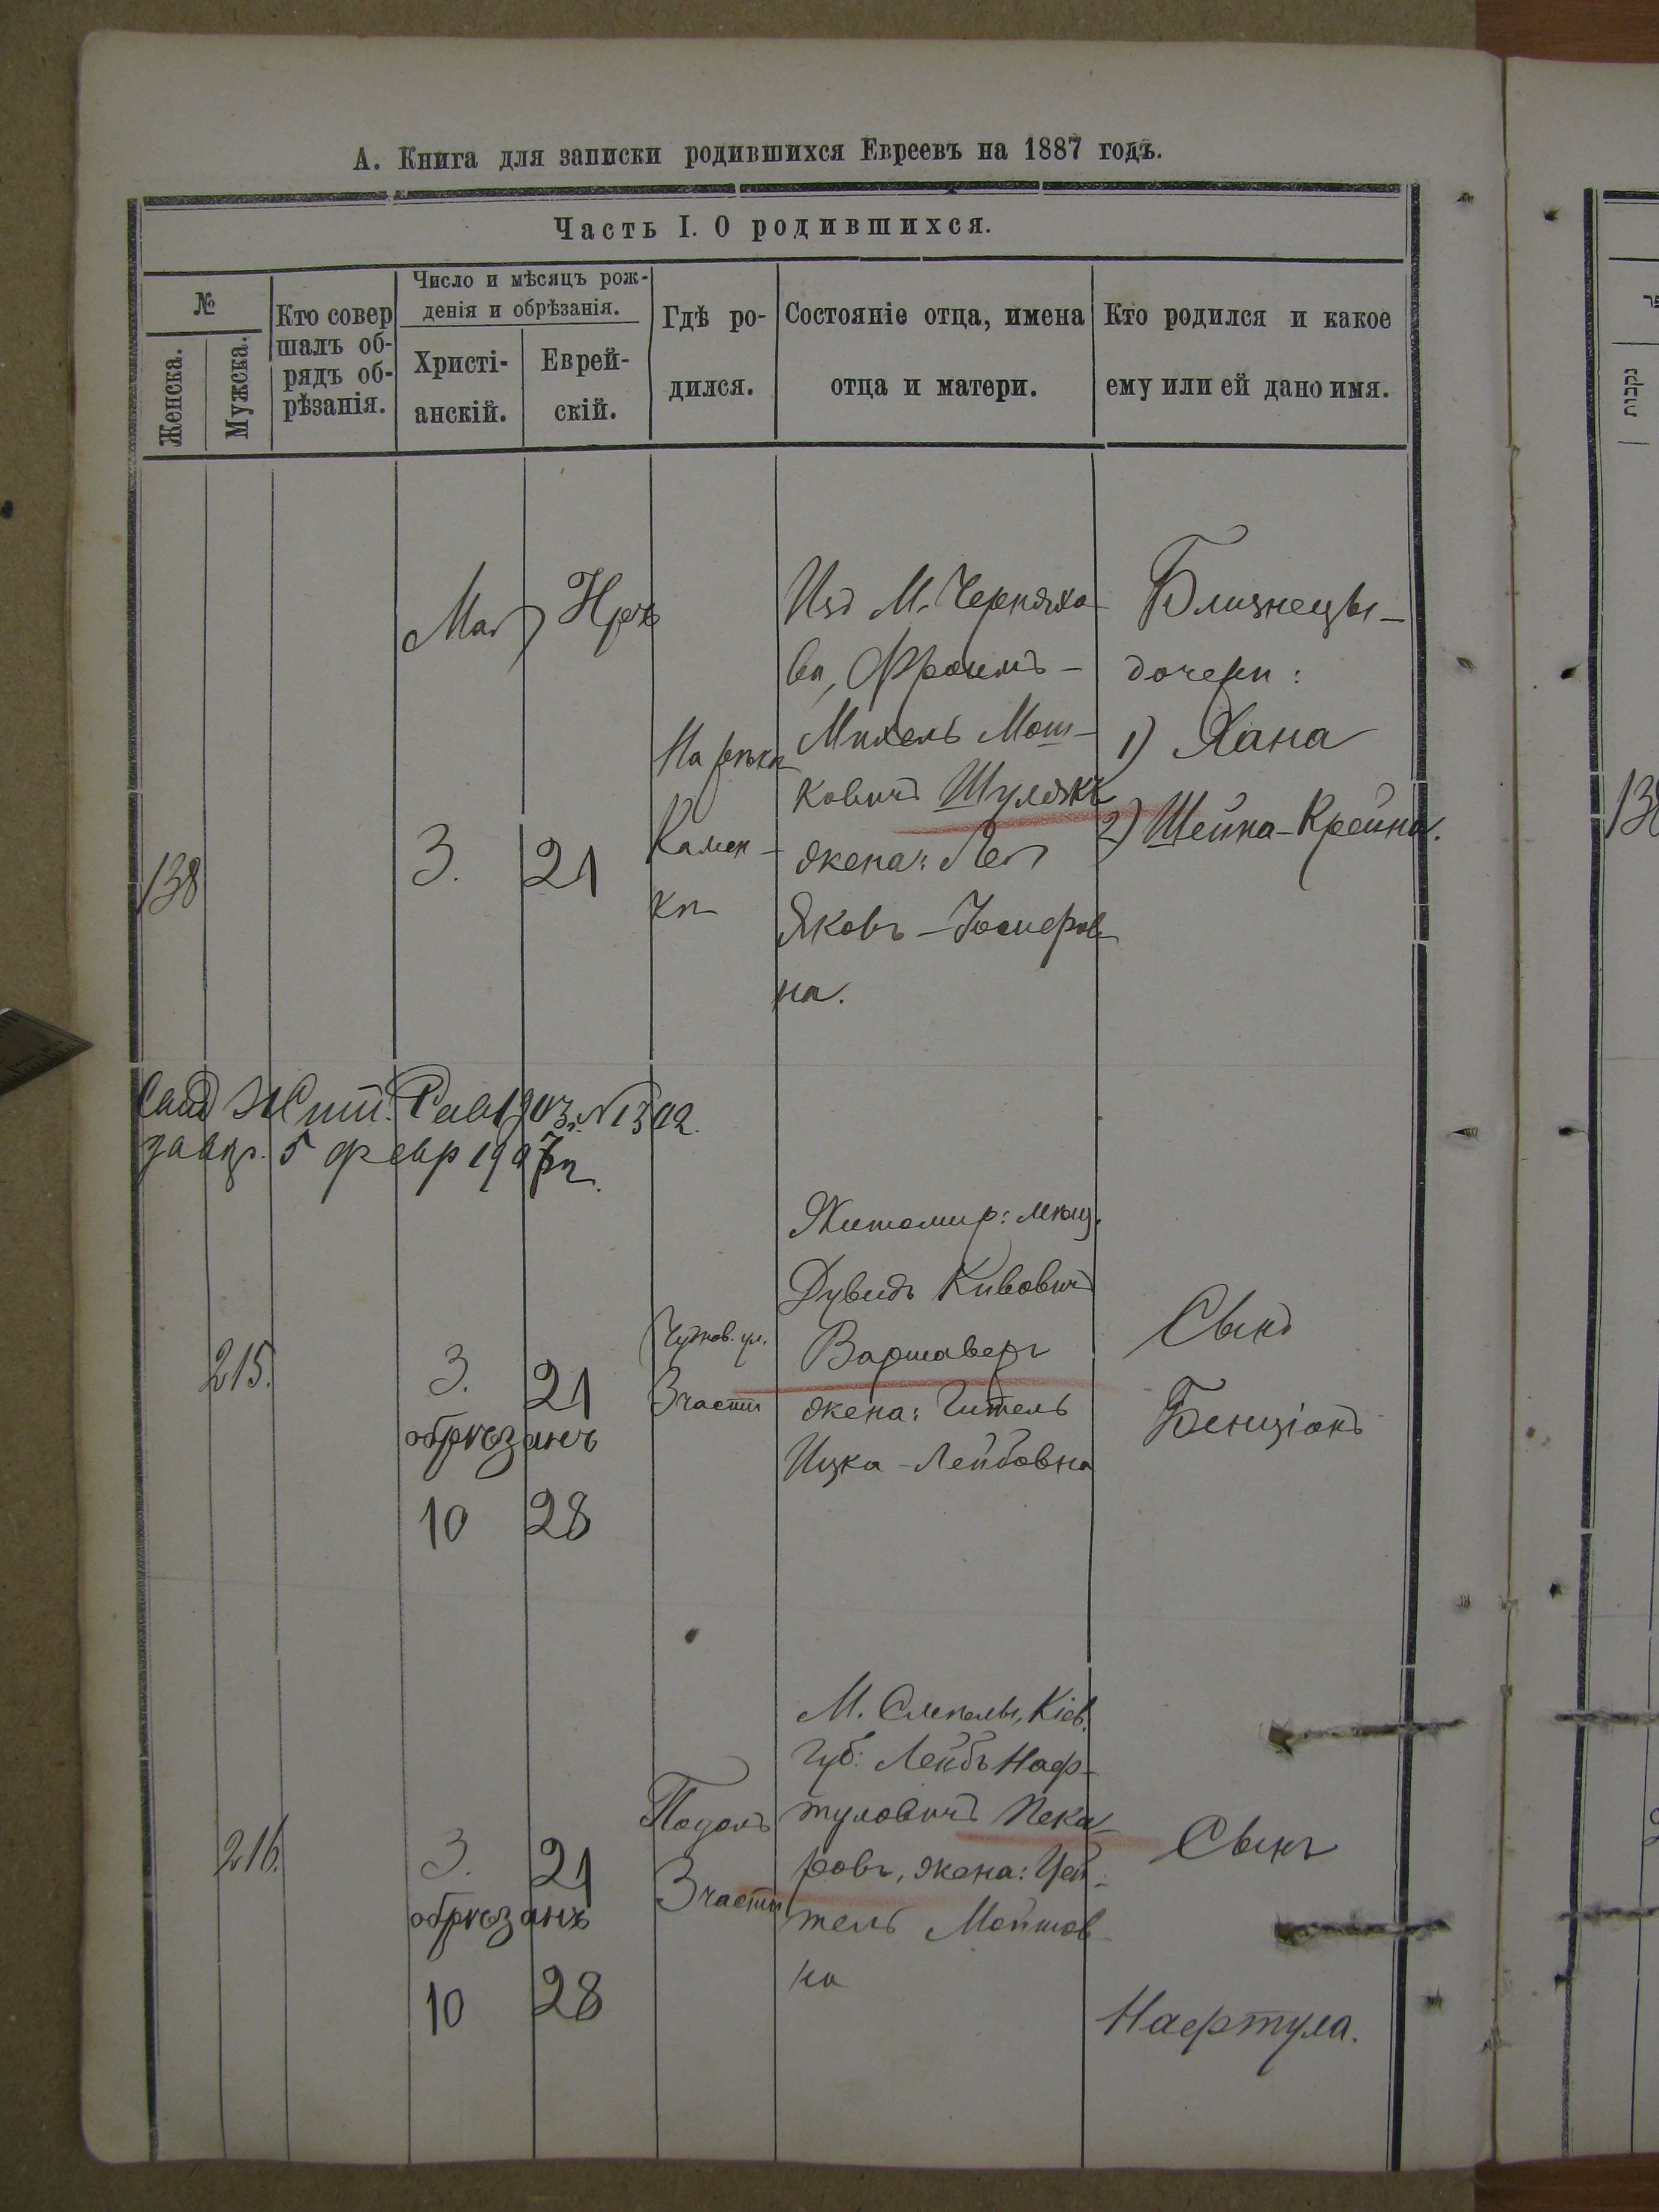 А. Книга для записки родившихся Евреевъ на 1887 годъ.
Часть I. О родившихся.
№
Женска.
Мужска.
Кто совер
шалъ об-
рядъ об-
рѣзанія.
Число и мѣсяцъ рож-
денія и обрѣзанія.
Христі-
анскій.
Еврей-
скій.
Гдѣ ро-
дился.
Состояніе отца, имена
отца и матери.
Кто родился и какое
ему или ей дано имя.
נקבות
138
Май
3.
21
На рѣкѣ
Камен-
кѣ
Изъ М. Черняхо-
ва, Фроимъ-
Михель Мош-
ковичъ Шулякъ
жена: Лея
Яковъ-Іосифов
на.
Близнецы-
дочери:
1) Хана
2) Шейна-Крейна.
138
5 февр
215.
3.
21
обрѣзанъ
10
28
Чудновск. ул.
3 части
Житомир: мѣщ.
Дувидъ Кивовичъ
Варшаверъ
жена: Гитель
Ицка-Лейбовна
Сынъ
Бенціонъ
216.
3.
21
обрѣзанъ
10
28
Подолъ
3 части
М. Смѣлы, Кіев.
Губ: Лейбъ Наф-
туловичъ Пека-
ровъ, жена: Цей-
тель Мошков-
на
Сынъ
Нафтула.